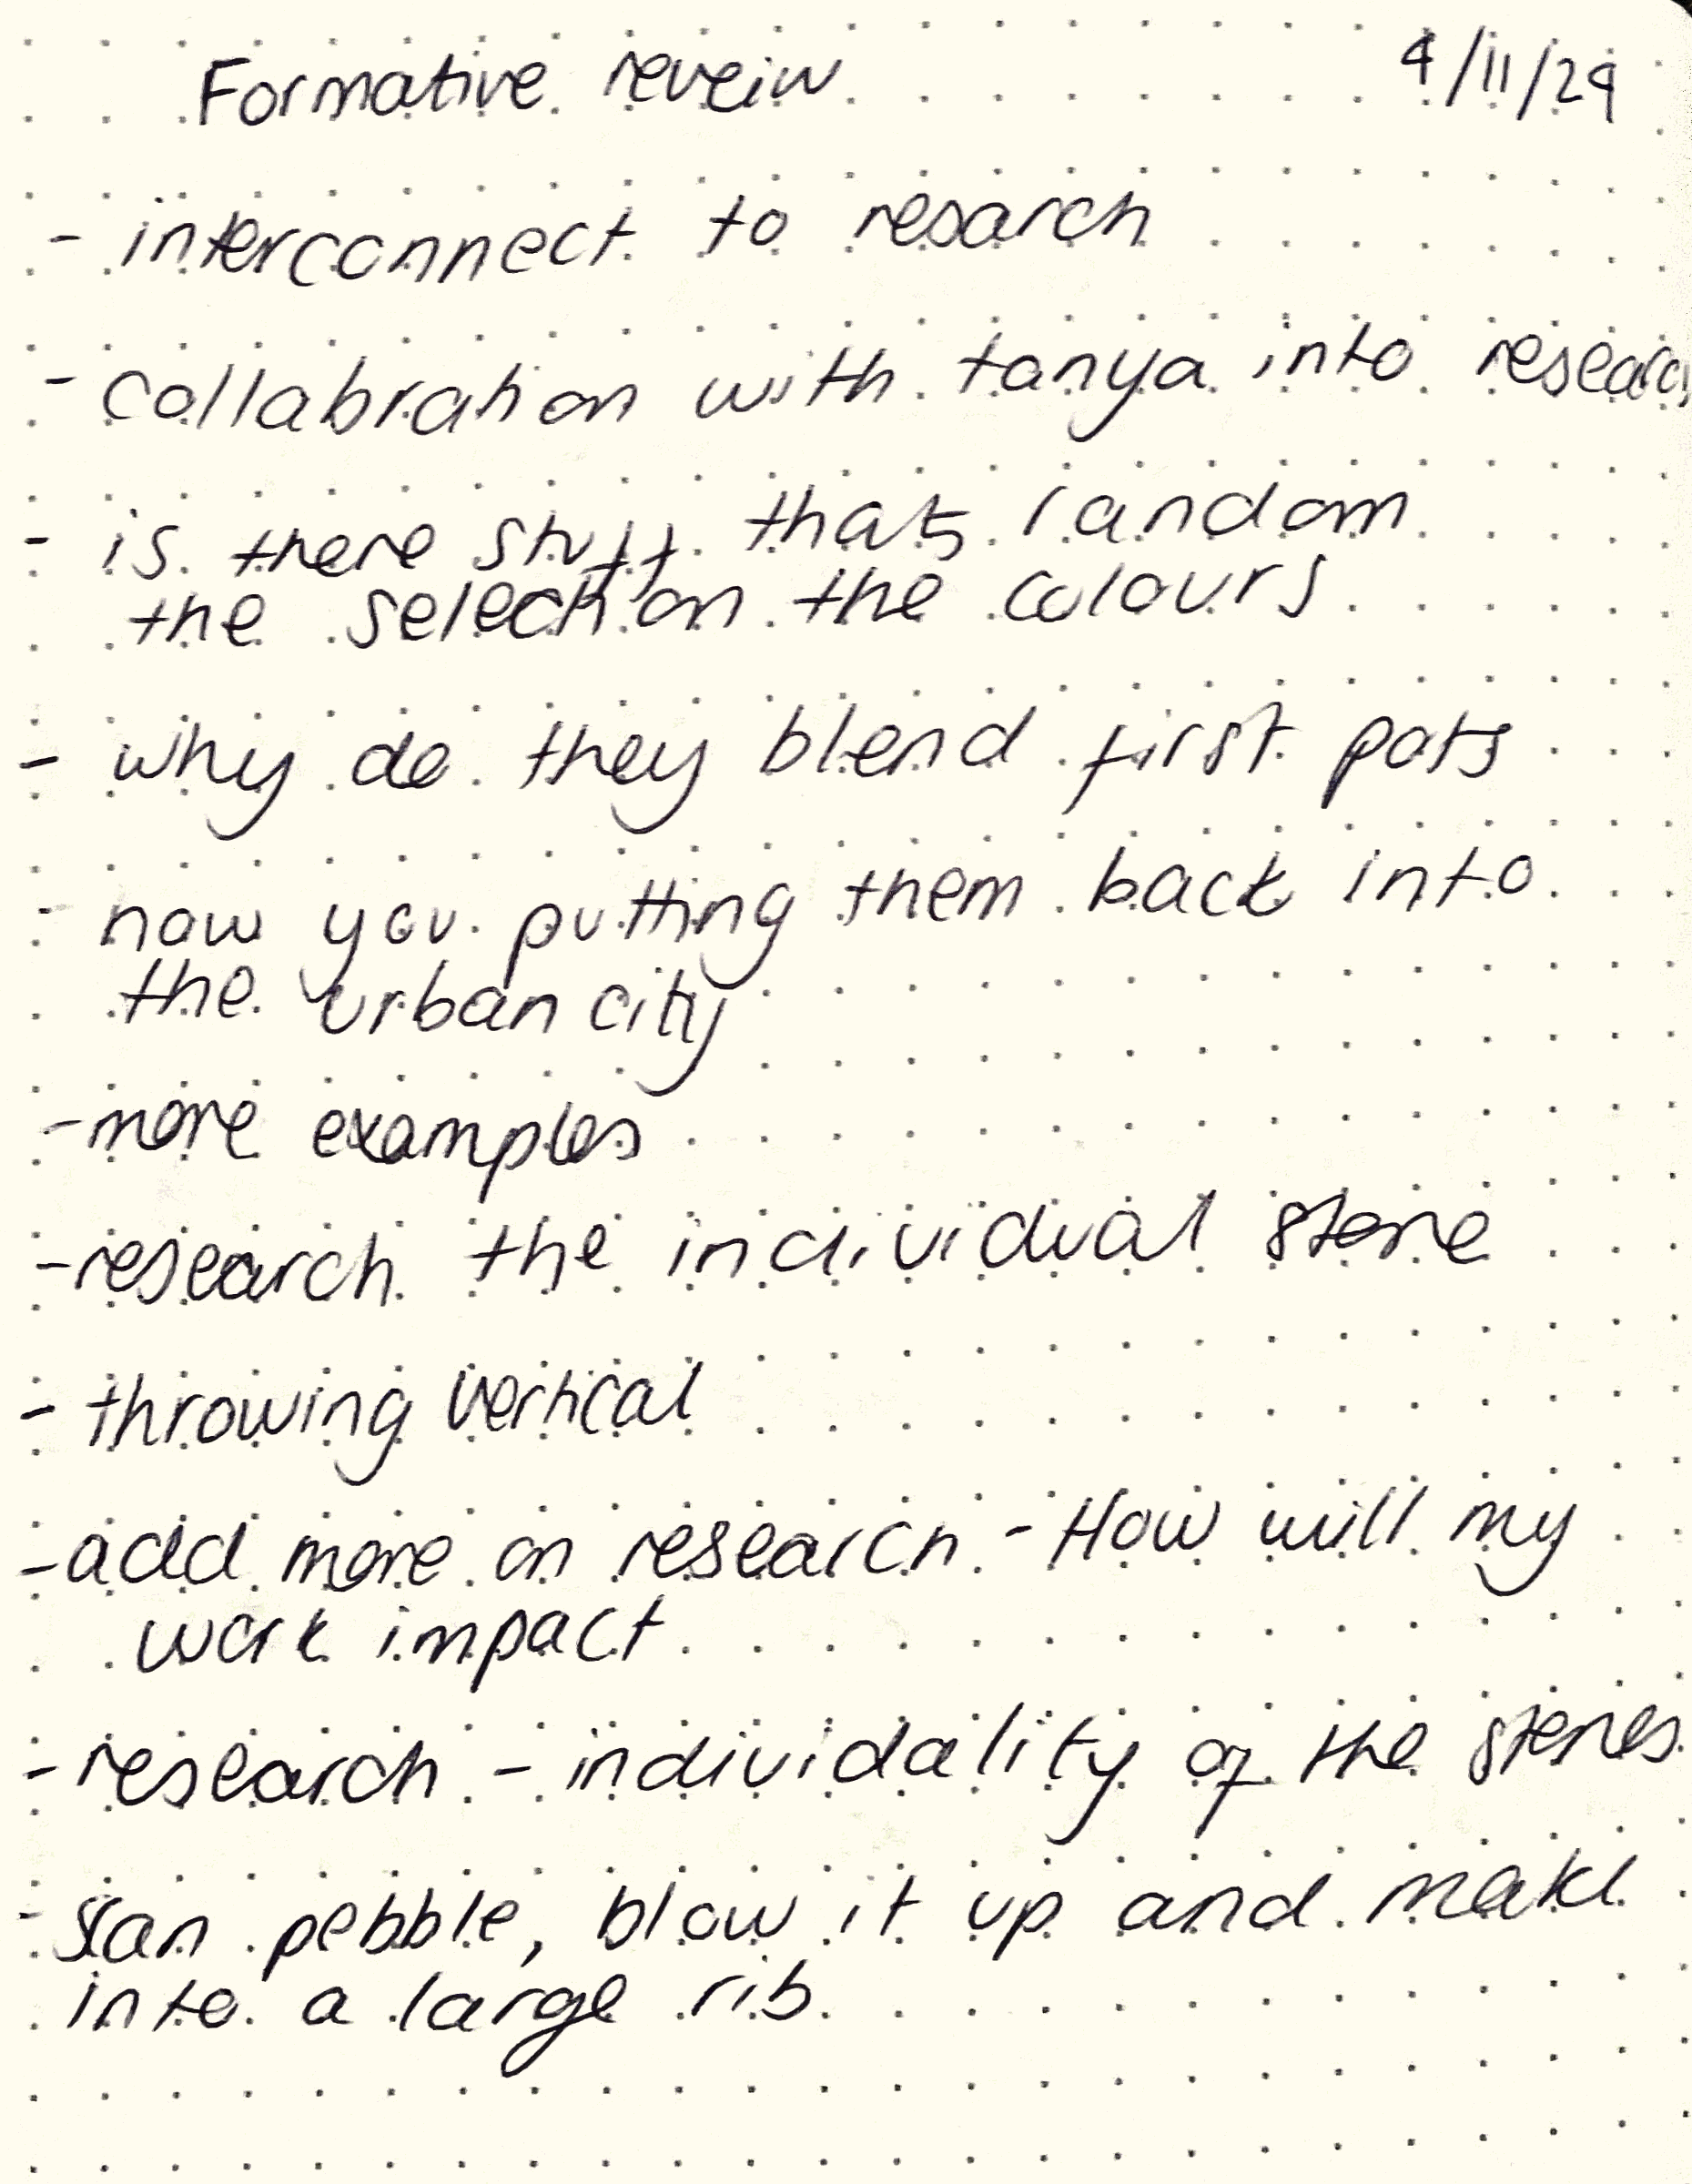 Formative reveiw 4/11/24
- interconnect to resarch
- collabration with tanya into research
- is there stuff thats random
the selection the colours
- why do they blend first pots
- now you putting them back into
the urban city
- more examples
- research the individual stone
- throwing vertical
- add more on research - How will my
work impact
- research - individality of the stones
- Scan pebble, blow it up and make
into a large rib